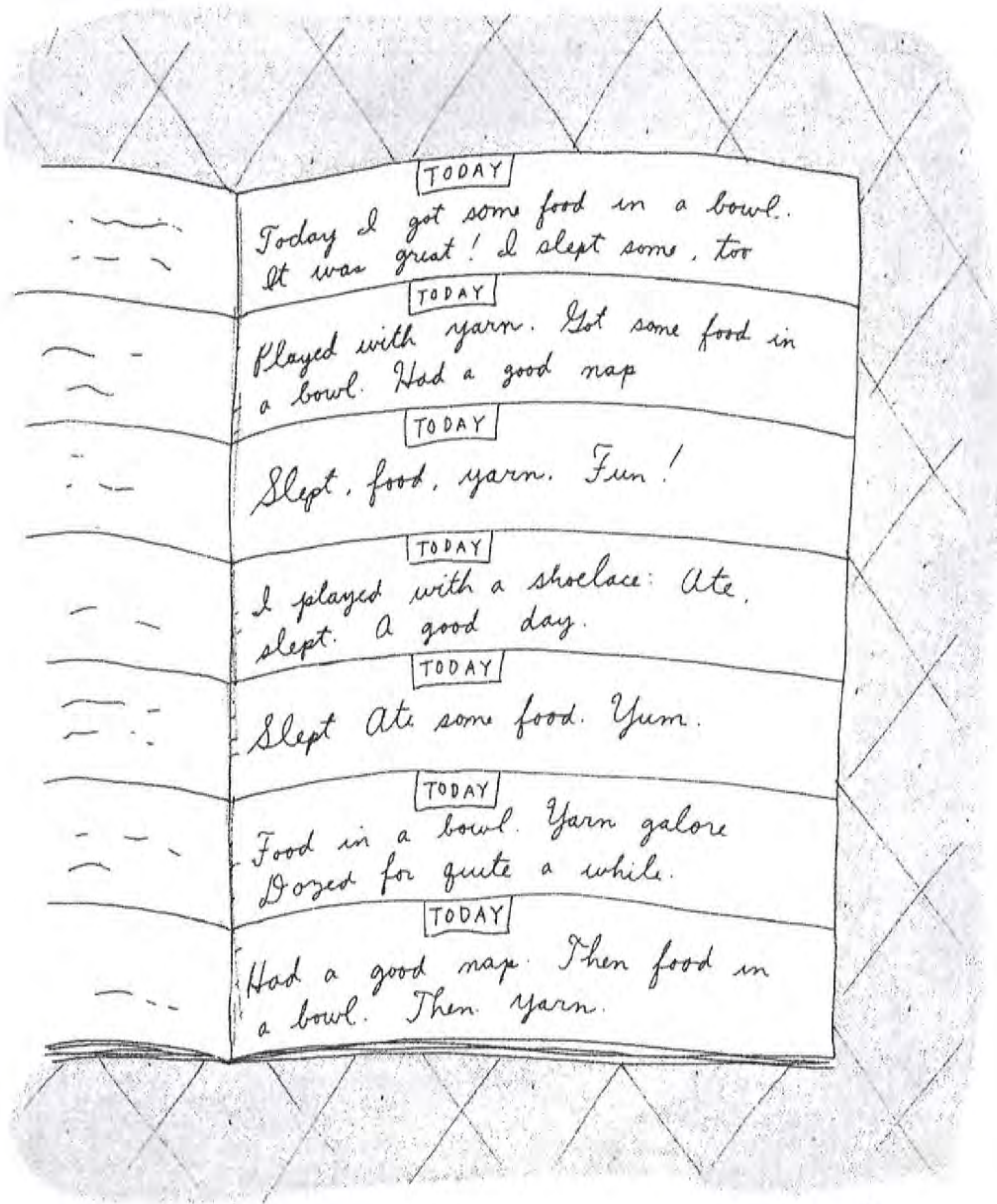 TODAY
Today I got some food in a bowl.
It was great! I slept some, too
TODAY
Played with yarn. Got some food in
a bowl. Had a good nap
TODAY
Slept, food, yarn. Fun!
TODAY
I played with a shoelace: Ate,
slept. A good day.
TODAY
Slept Ate some food. Yum.
TODAY
Food in a bowl. Yarn galore
Dozed for quite a while.
TODAY
Had a good nap. Then food in
a bowl. Then yarn.